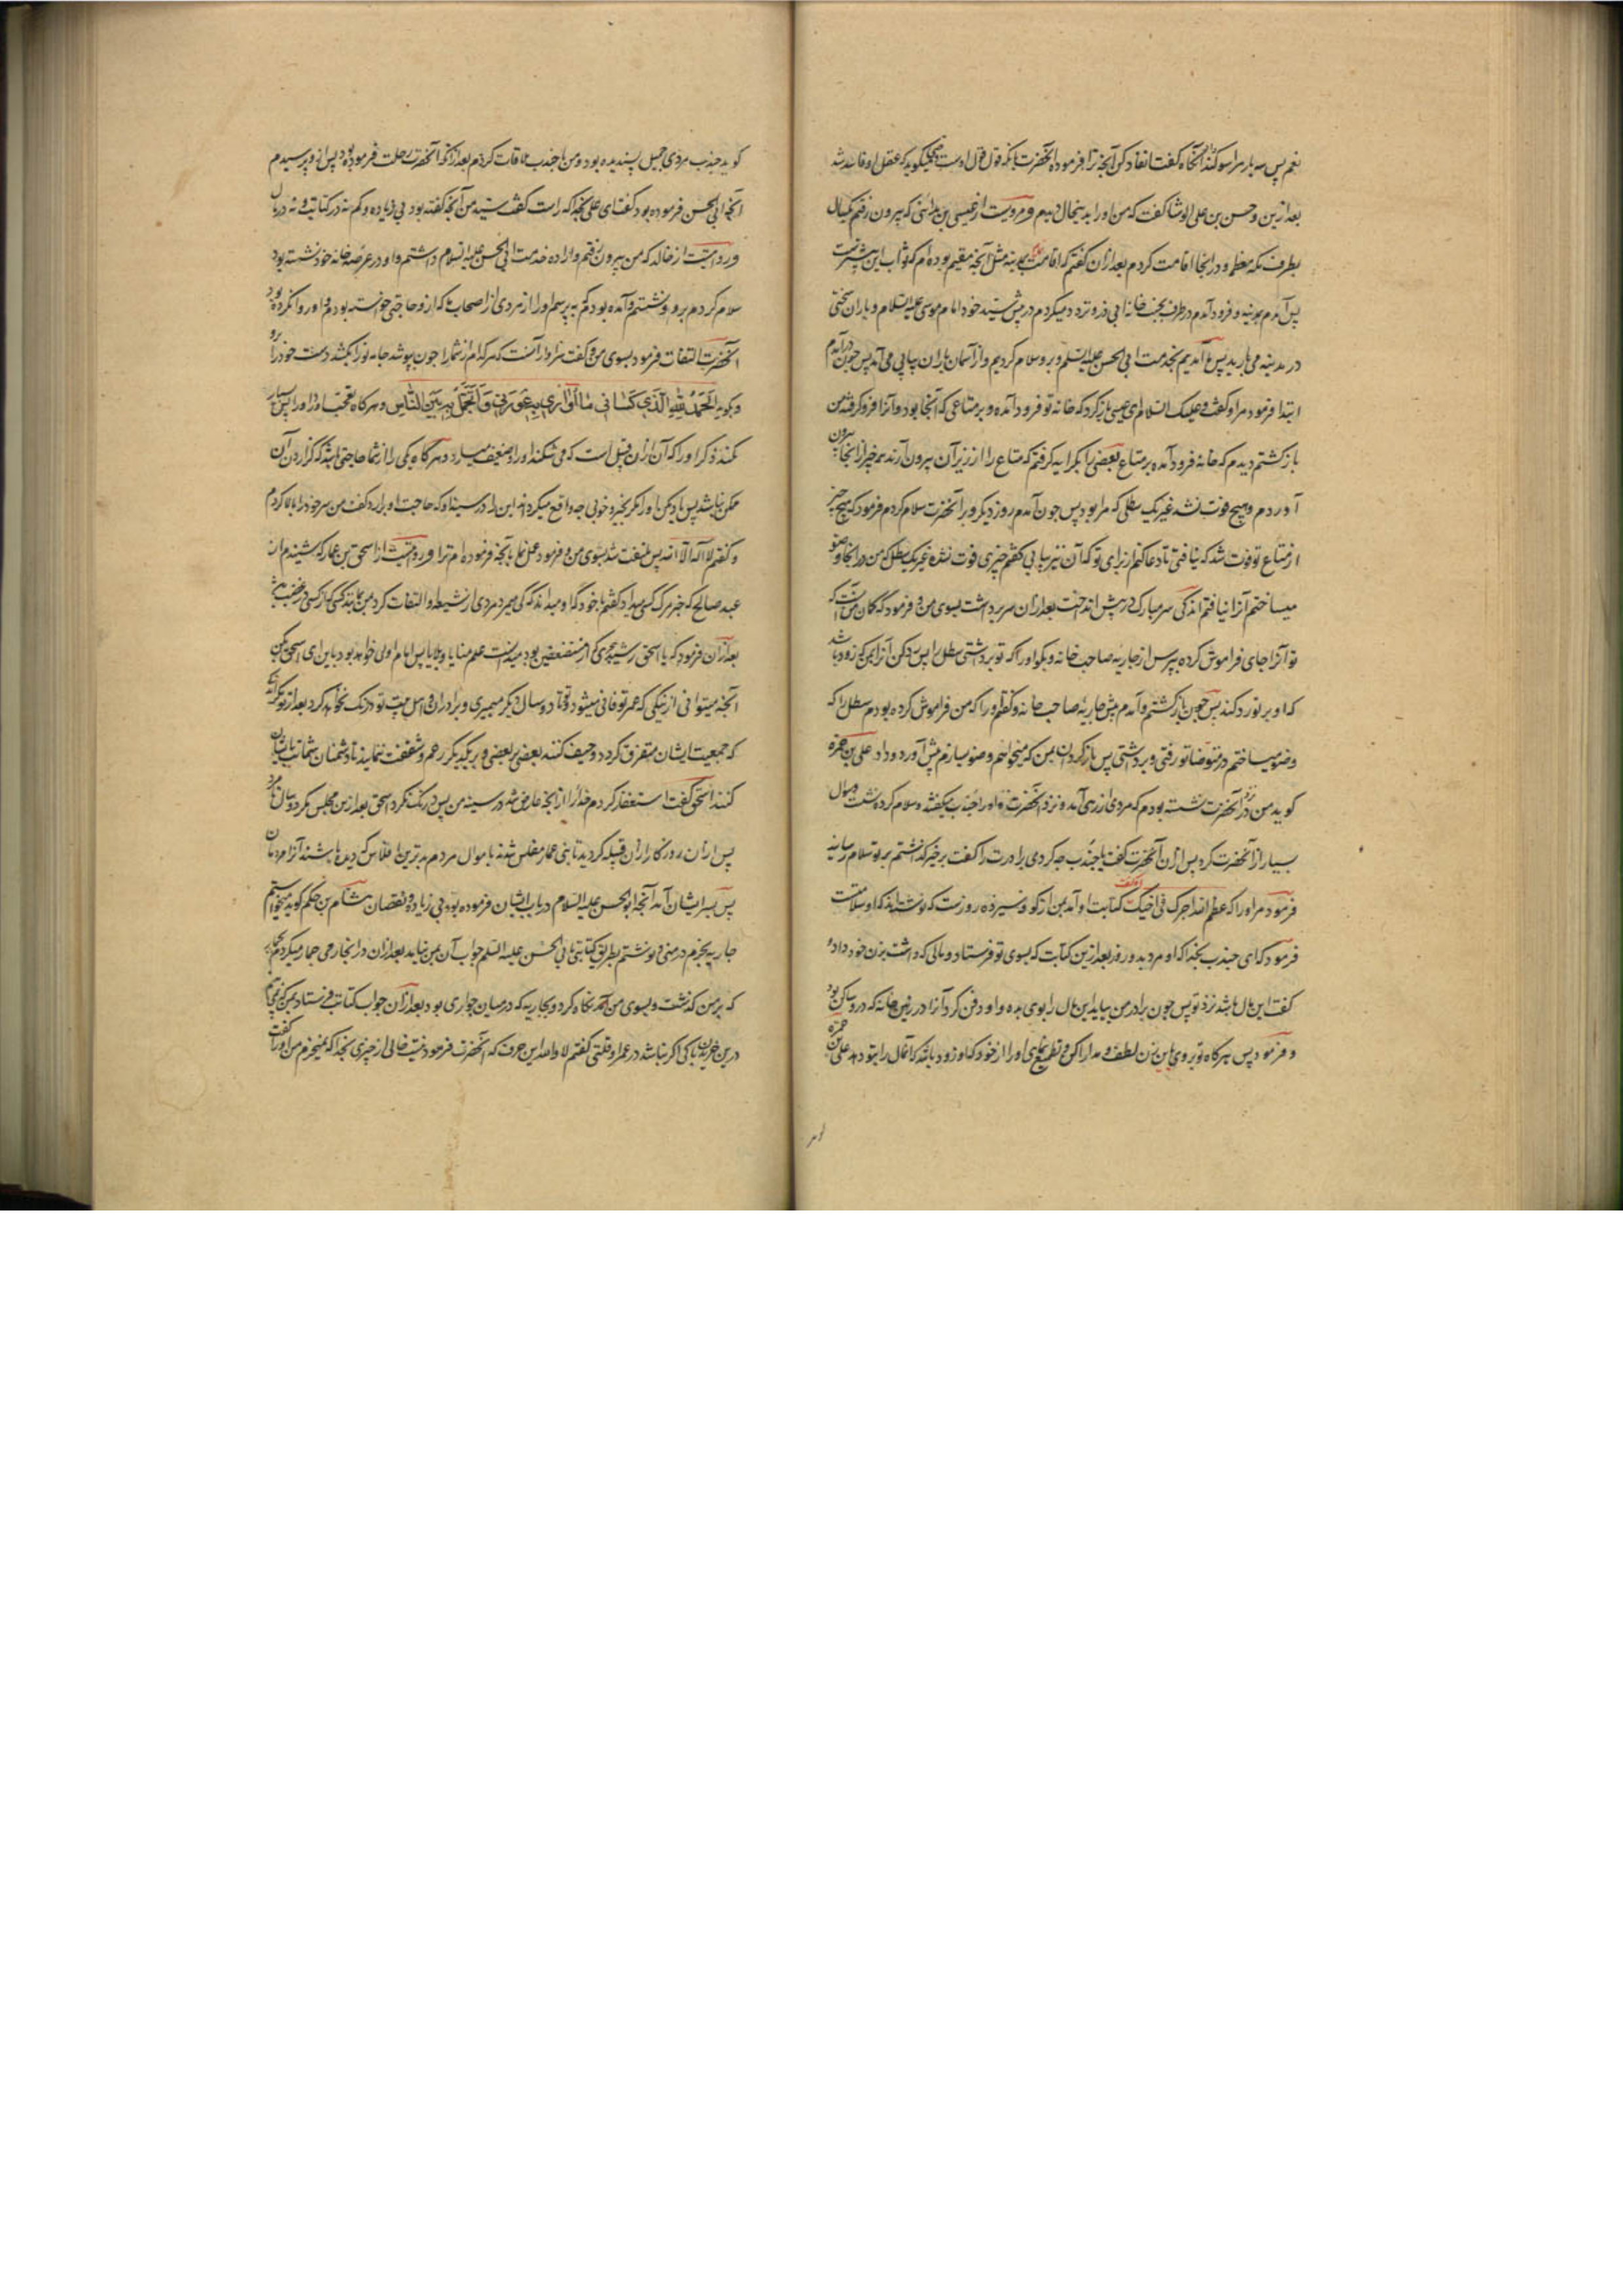 نعم پس سه بار مرا سوگند داد آنگاه گفت انفاد کن آنچه ترا فرموده آنحضرت بانکه قول قول اوست میگوید که عقل او فاسد شد
بعد ازین و حسن بن علی الوشا گفت که من او را بدینحال دیدم و مرویست از عیسی بن مداینی که بیرون رفتم یکسال
بطرف مکه معظمه و در آنجا اقامت کردم بعد از آن گفتم که اقامت بمدینه مثل آنچه مقیم بوده ام که ثواب این بیشترست
پس آمدم بمدینه و فرود آمدم در طرف بجنب خانه ابی ذر و تردد میکردم در پیش سید خود امام موسی علیه السلام و باران سختی
در مدینه می بارید پس ما آمدیم بخدمت ابی الحسن علیه السلم و برو سلام کردیم و از آسمان باران پیاپی می آمد پس چون در آمدم
ابتدا فرمود مرا و گفت و علیک السلام ای عیسی باز گرد که خانه تو فرود آمده و بر متاعی که آنجا بود و آنرا فرو گرفته من
باز گشتم دیدم که خانه فرود آمده بر متاع بعضی را بکرایه گرفتم که متاع را از زیر آن بیرون آرند همه چیز از آنجا بیرون
آوردم و هیچ فوت نشد غیر یک سطلی که مرا بود پس چون آمدم روز دیگر و بر آنحضرت سلام کردم فرمود که هیچ چیز
از متاع تو فوت شد که نیافتی تا دعا کنم از برای تو که آن نیز بیابی گفتم چیزی فوت نشده غیر یک سطل که من در آنجا وضو
میساختم آنرا نیافتم اندکی سر مبارک در پیش انداخت بعد از آن سر برداشت بسوی من و فرمود که گمان من آنست که
تو آنرا جای فراموش کرده بپرس از جاریه صاحب خانه و بگو او را که تو برداشتی سطل را پس رد کن آنرا بمن که زود باشد
که او بر تو رد کند پس چون باز گشتم و آمدم پیش جاریه صاحب خانه و گفتم او را که من فراموش کرده بودم سطل را که
وضو میساختم در متوضا تو رفتی و برداشتی پس باز گردان بمن که میخواهم وضو سازم پیش آورد و داد علی بن حمزه
گوید من نزد آنحضرت نشسته بودم که مردی از ری آمد و نزد آنحضرت که او را جندب میگفتند و سلام کرد و نشست و سوال
بسیار از آنحضرت کرد پس از آن آنحضرت گفت یا جندب چه کردی برادرت را گفت بر خیر گذاشتم بر تو سلام رسانید
فرمود مرا و را که عظم الله اجرک فی اخیک گفت کتابت او آمد بمن از کوفه سیزده روزست که نوشته اند که او سلامتست
فرمود که ای جندب بخدا که او مرد بدو روز بعد ازین کتابت که بسوی تو فرستاد و مالی که داشت بزن خود داد و
گفت این مال باشد نزد تو پس چون برادر من بیاید این مال را بوی بده و او دفن کرد آنرا در زمین خانه که درو ساکن بود
و فرمود پس هرگاه تو بروی باین زن لطف و مدارا کن و تطمیع نمای او را از خود که او زود باشد که آنمال را بتو دهد علی بن حمزه
گوید جندب مردی جمیل پسندیده بود و من با جندب ملاقات کردم بعد از آنکه آنحضرت رحلت فرموده بود پس از و پرسیدم
آنچه ابی الحسن فرموده بود گفت ای علی بخدا که راست گفت سید من آنچه گفته بود بی زیاده و کم نه در کتابت و نه در مال
و روایتست از خالد که من بیرون رفتم و اراده خدمت ابی الحسن علیه السلام داشتم و او در عرصه خانه خود نشسته بود
سلام کردم برو و نشستم و آمده بودم که بپرسم او را از مردی از اصحاب ما که ازو حاجتی خواسته بودم و او روا نکرده بود
آنحضرت التفات فرمود بسوی من و گفت سزاوار آنست که هر کدام از شما را چون بپوشد جامه نو را بکشد دست خود را برو
و بگوید الحمد لله الذی کسانی ما اواری به عورتی و اتجمل به بین الناس و هرگاه تعجب آورد او را پس بسیار
نکند ذکر او را که آن از آن قبیل است که می شکند او را و ضعیف میسازد و هرگاه یکی را از شما حاجتی باشد که گزاردن آن
ممکن نباشد پس یاد مکن او را مگر بخیر و خوبی چه واقع میگرداند این را در سینه او که حاجت او برآرد گفت من سر خود را بالا کردم
و گفتم لا اله الا الله پس ملتفت شد بسوی من و فرمود عمل نما بآنچه فرموده ام ترا و روایتست از اسحق بن عمار که شنیدم از
عبد صالح که خبر مرگ کسی میداد گفتم با خود که او میداند که کی میمرد مردی از شیعه او التفات کرد بمن مانند کسی که از کسی در غضب باشد
بعد از آن فرمود که یا اسحق رشید هجری که از مستضعفین بود میدانست علم منایا و بلایا پس امام اولی خواهد بود باین ای اسحق بکن
آنچه میتوانی از نیکی که عمر تو فانی میشود و تو تا دو سال دیگر میمیری و برادران و اهل بیت تو درنگ نخواهند کرد بعد از تو مگر اندکی
که جمعیت ایشان متفرق گردد و حیف کنند بعضی بر بعضی و بر یکدیگر رحم و شفقت ننمایند تا دشمنان شماتت بایشان
کنند اسحق گفت استغفار کردم خدا را از آنچه عارض شد در سینه من پس درنگ نکرد اسحق بعد ازین مجلس مگر دو سال که مرد
پس از آن روزگار از آن قبیله گردید تا بنی عمار مفلس شدند باموال مردم بدترین افلاس که دیده باشند آنرا مردمان
پس بسر ایشان آمد آنچه ابو الحسن علیه السلام در باب ایشان فرموده بود بی زیاده و نقصان هشام بن حکم گوید میخواستم
جاریه بخرم در منی و نوشتم بطریق کتابتی بابی الحسن علیه السلم جواب آن بمن نیامد بعد از آن در آنجا رمی جمار میکردم
که بر من گذشت و بسوی من نگاه کرد و بجاریه که در میان جواری بود بعد از آن جواب کتابت فرستاد بمن که نمی بینم
درین خریدن باکی اگر نباشد در عمر او قلتی گفتم لا و الله این حرفی که آنحضرت فرمود نیست خالی از چیزی بخدا که نمیخرم من او را گفت